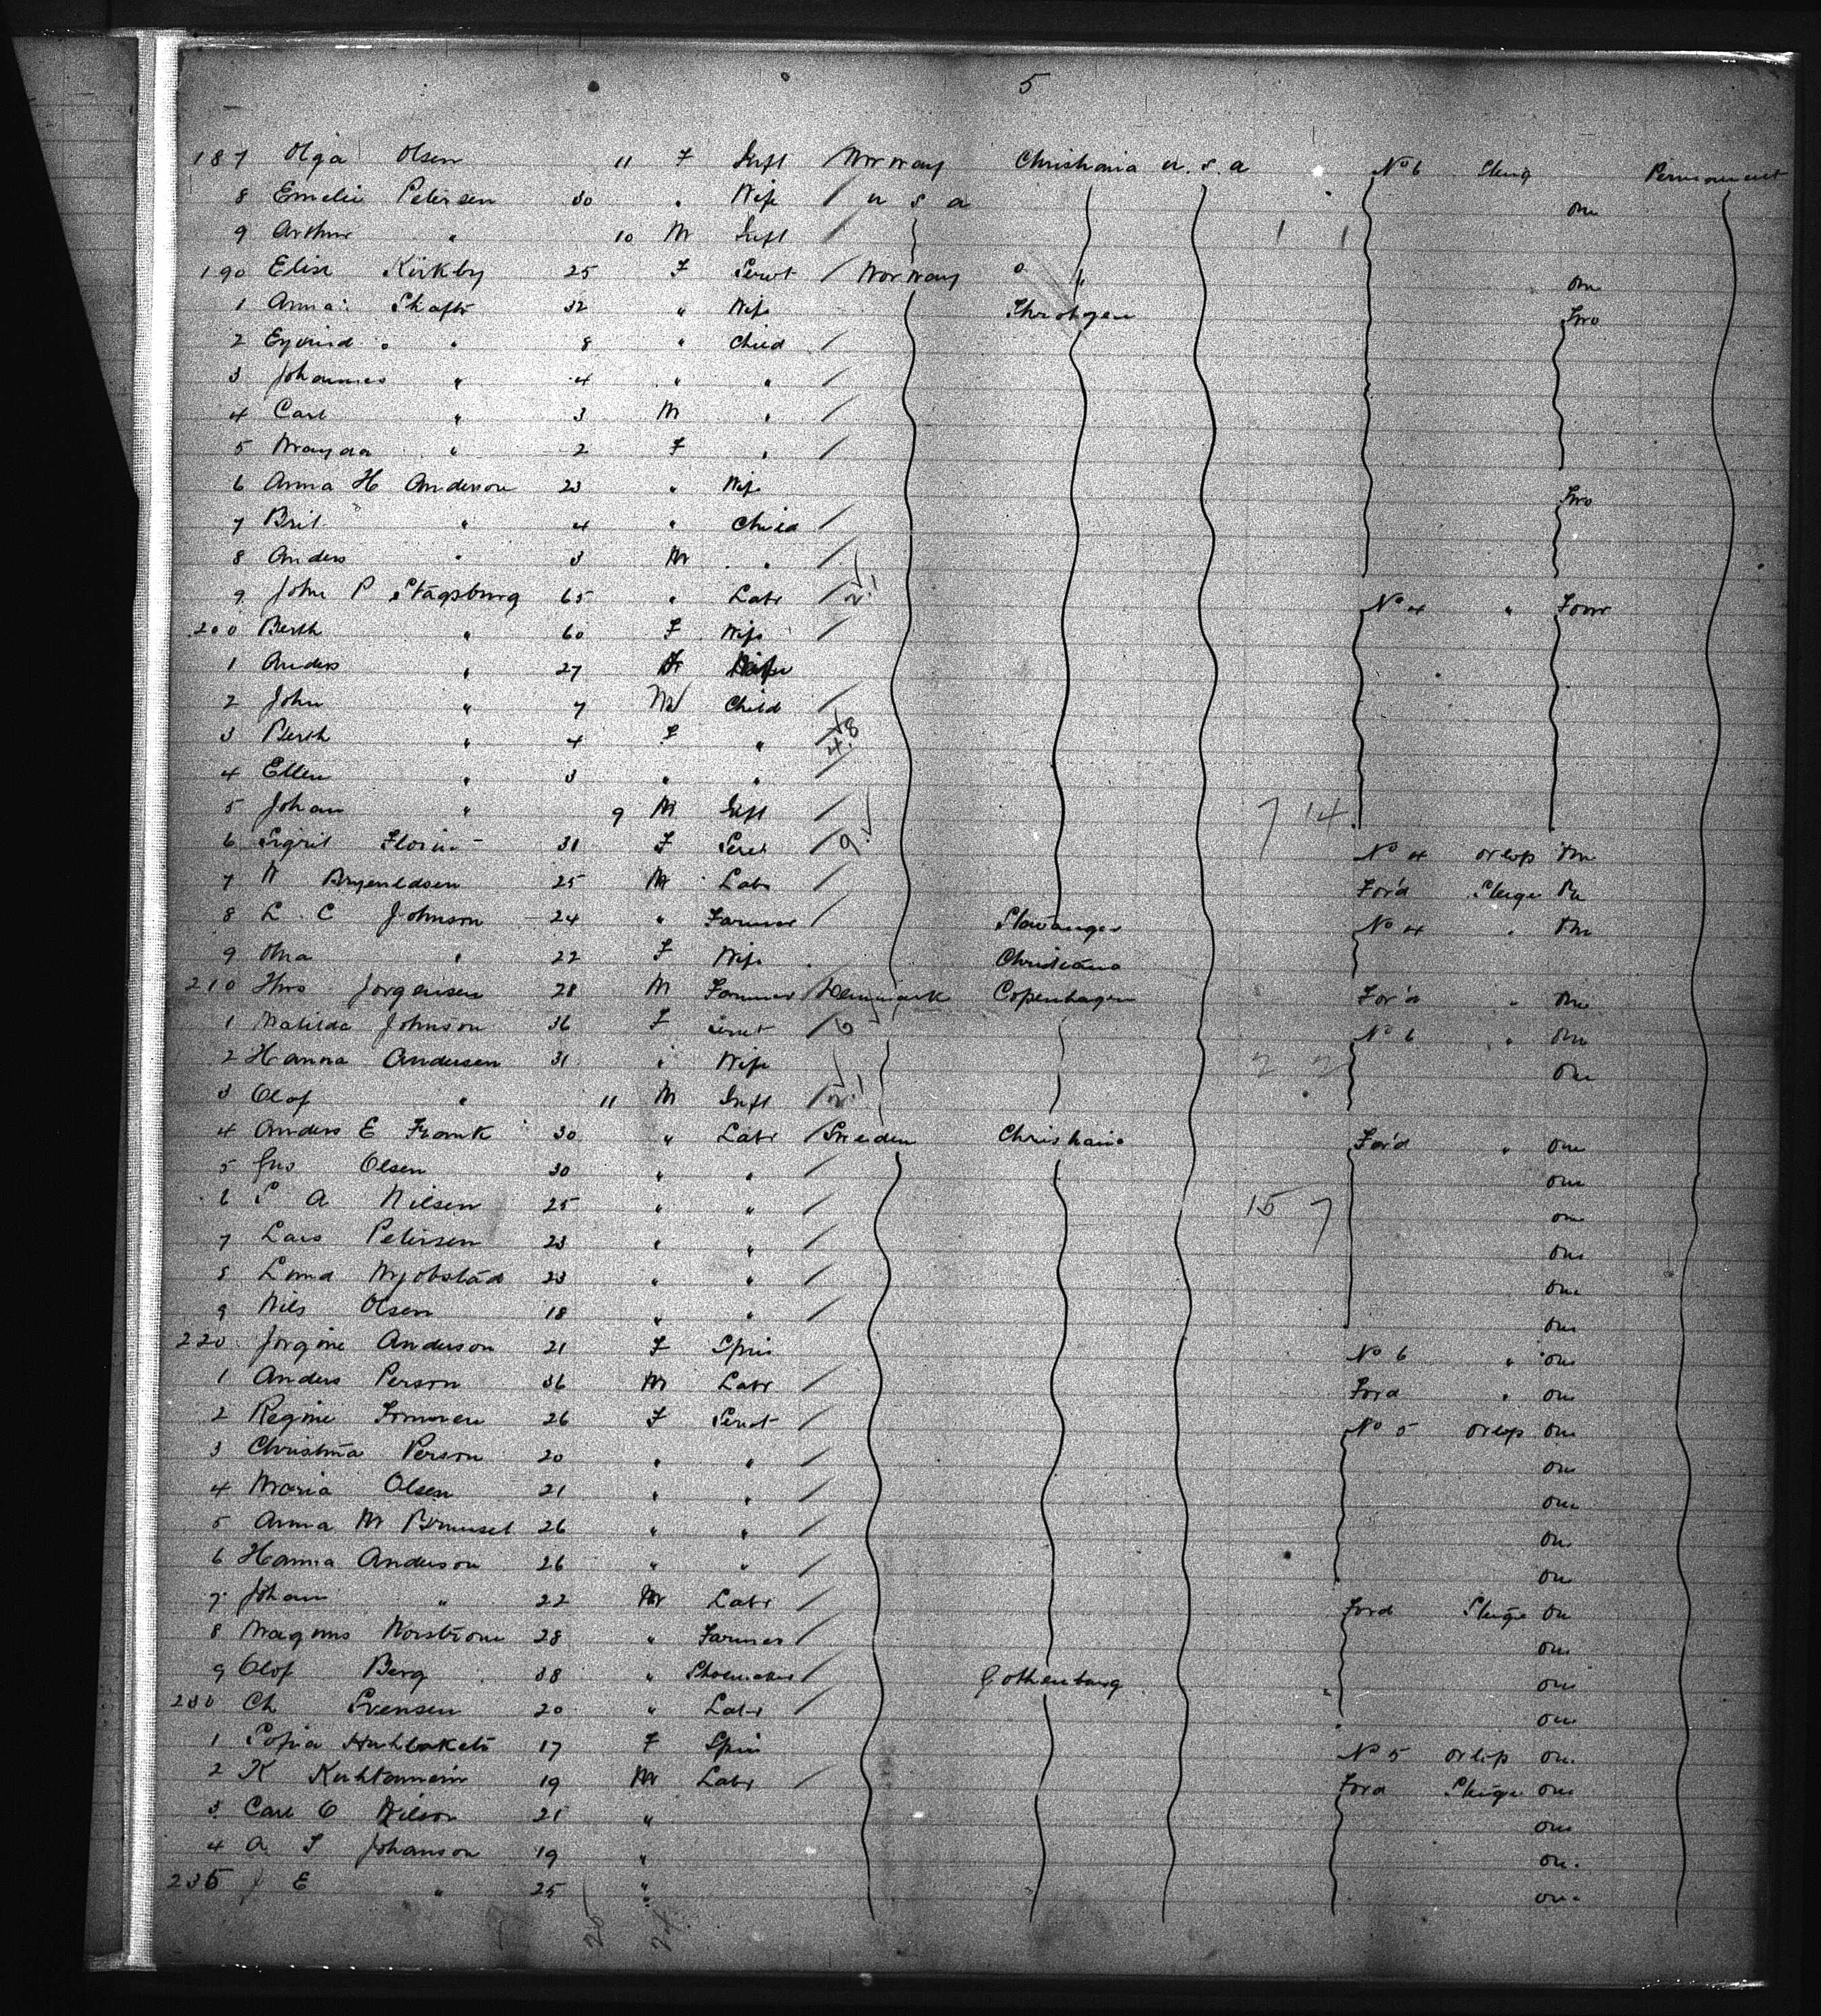 5
187 Olga Olsen 11 F Inft / Norway Christiania U.S.A No 6 Steug Permanent
8 Emelie Petersen 30 " Wife / U S A One
9 Arthur " 10 M Inft / 1 1
190 Elise Kirkby 25 F Servt / Norway " " One
1 Anna Skafte 32 " Wife Two
2 Eyvind " 8 " Child /
3 Johannes " 4 " " /
4 Carl " 3 M " /
5 " 2 F " /
6 Anna H Anderson 23 " Wife Two
7 Brit " 4 " Child /
8 Anders " 3 M " /
9 John P Stagsburg 65 " Labr / 2! No 4 " Four
200 Berth " 60 F Wife /
1 Anders " 27
2 John " 7 M Child /
3 Berth " 4 F " / 48
4 Ellen " 3 " " /
5 Johan " 9 M Inft / 7 14
6 Sigrit 31 F Servt / 9 No 4 Orlop One
7 N 25 M Labr / For'd Stuge One
8 L. C Johnson 24 " Farmer / Stavanger No 4 " One
9 " 22 F Wife Christiana
210 Jorgensen 28 M Farmer / Denmark Copenhagen For'd " One
1 Matilda Johnson 36 F Servt / No 6 " One
2 Hanna Andersen 31 " Wife 2 2 One
3 Olof " 11 M Inft / 2!
4 Anders E Frank 30 " Labr / Sweden Christiania For'd " One
5 Jno Olsen 30 " " / One
6 S A Nilsen 25 " " / 15 7 One
7 Lars Petersen 23 " " / One
8 23 " " / One
9 Nils Olsen 18 " " / One
220 Jorgine Anderson 21 F Spin No 6 " One
1 Anders Person 36 M Labr / Ford " One
2 Regine 26 F Servt / No 5 Orlop One
3 Christina Person 20 " " / One
4 Maria Olsen 21 " " / One
5 Anna M 26 " " / One
6 Hanna Anderson 26 " " / One
7 Johan " 22 M Labr / Ford Stuge One
8 Magnus Norstrom 28 " Farmer / One
9 Olof Berg 38 " Shoemaker / Gothenburg One
230 Ch Svensen 20 " Labr / One
1 Sofia 17 F Spin No 5 Orlop One
2 K 19 M Labr / Ford Stuge One
3 Carl O Nilson 21 " One
4 A S Johanson 19 " One
235 J E " 25 " One